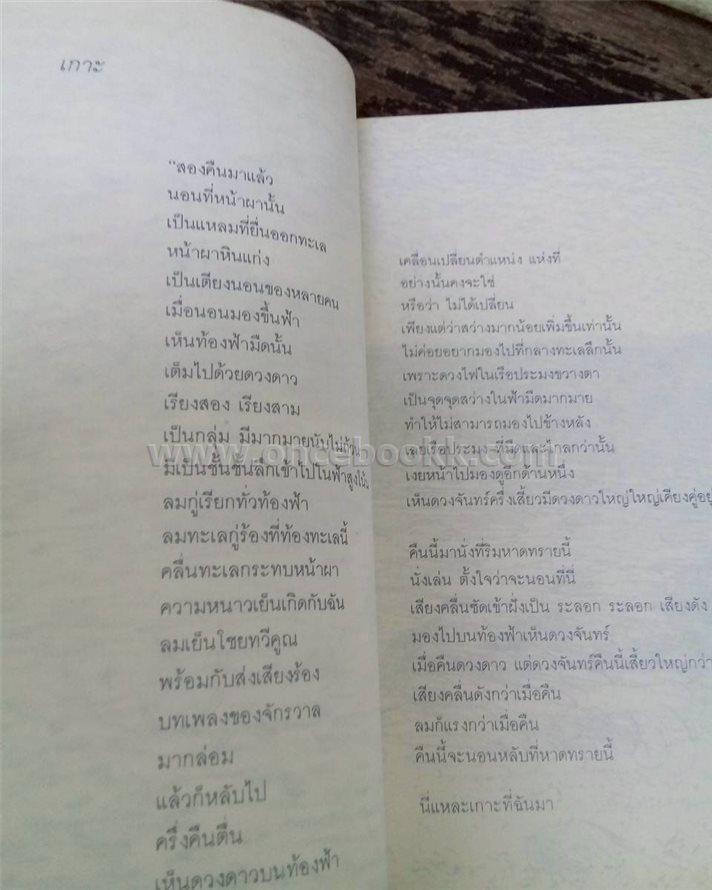 เกาะ
"สองคืนมาแล้ว
นอนที่หน้าผานั้น
เป็นแหลมที่ยื่นออกทะเล
หน้าผาหินแก่ง
เป็นเตียงนอนของหลายคน
เมื่อนอนมองขึ้นฟ้า
เห็นท้องฟ้ามืดนั้น
เต็มไปด้วยดวงดาว
เรียงสอง เรียงสาม
เป็นกลุ่ม มีมากมายนับไม่ถ้วน
มีเป็นชั้นชั้นลึกเข้าไปในฟ้าสูง
ลมกู่เรียกทั่วท้องฟ้า
ลมทะเลกู่ร้องที่ท้องทะเลนี้
คลื่นทะเลกระทบหน้าผา
ความหนาวเย็นเกิดกับฉัน
ลมเย็นโชยทวีคูณ
พร้อมกับส่งเสียงร้อง
บทเพลงของจักรวาล
มากล่อม
แล้วก็หลับไป
ครึ่งคืนตื่น
เห็นดวงดาวบนท้องฟ้า
เคลื่อนเปลี่ยนตำแหน่ง แห่งที่
อย่างนั้นคงจะใช่
หรือว่า ไม่ได้เปลี่ยน
เพียงแต่ว่าสว่างมากน้อยเพิ่มขึ้นเท่านั้น
ไม่ค่อยอยากมองไปที่กลางทะเลลึกนั้น
เพราะดวงไฟในเรือประมงขวางตา
เป็นจุดจุดสว่างในฟ้ามืดมากมาย
ทำให้ไม่สามารถมองไปข้างหลัง
เลยเรือประมง ที่มืดและไกลกว่านั้น
เงยหน้าไปมองดูอีกด้านหนึ่ง
เห็นดวงจันทร์ครึ่งเสี้ยวมีดวงดาวใหญ่ใหญ่เคียงคู่อยู่
คืนนี้มานั่งที่ริมหาดทรายนี้
นั่งเล่น ตั้งใจว่าจะนอนที่นี่
เสียงคลื่นซัดเข้าฝั่งเป็น ระลอก ระลอก เสียงดัง
มองไปบนท้องฟ้าเห็นดวงจันทร์
เมื่อคืนดวงดาว แต่ดวงจันทร์คืนนี้เสี้ยวใหญ่กว่า
เสียงคลื่นดังกว่าเมื่อคืน
ลมก็แรงกว่าเมื่อคืน
คืนนี้จะนอนหลับที่หาดทรายนี้
นี่แหละเกาะที่ฉันมา
www.oncebookk.com